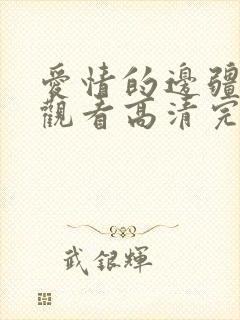 愛情的邊疆
觀看高清完
武銀輝